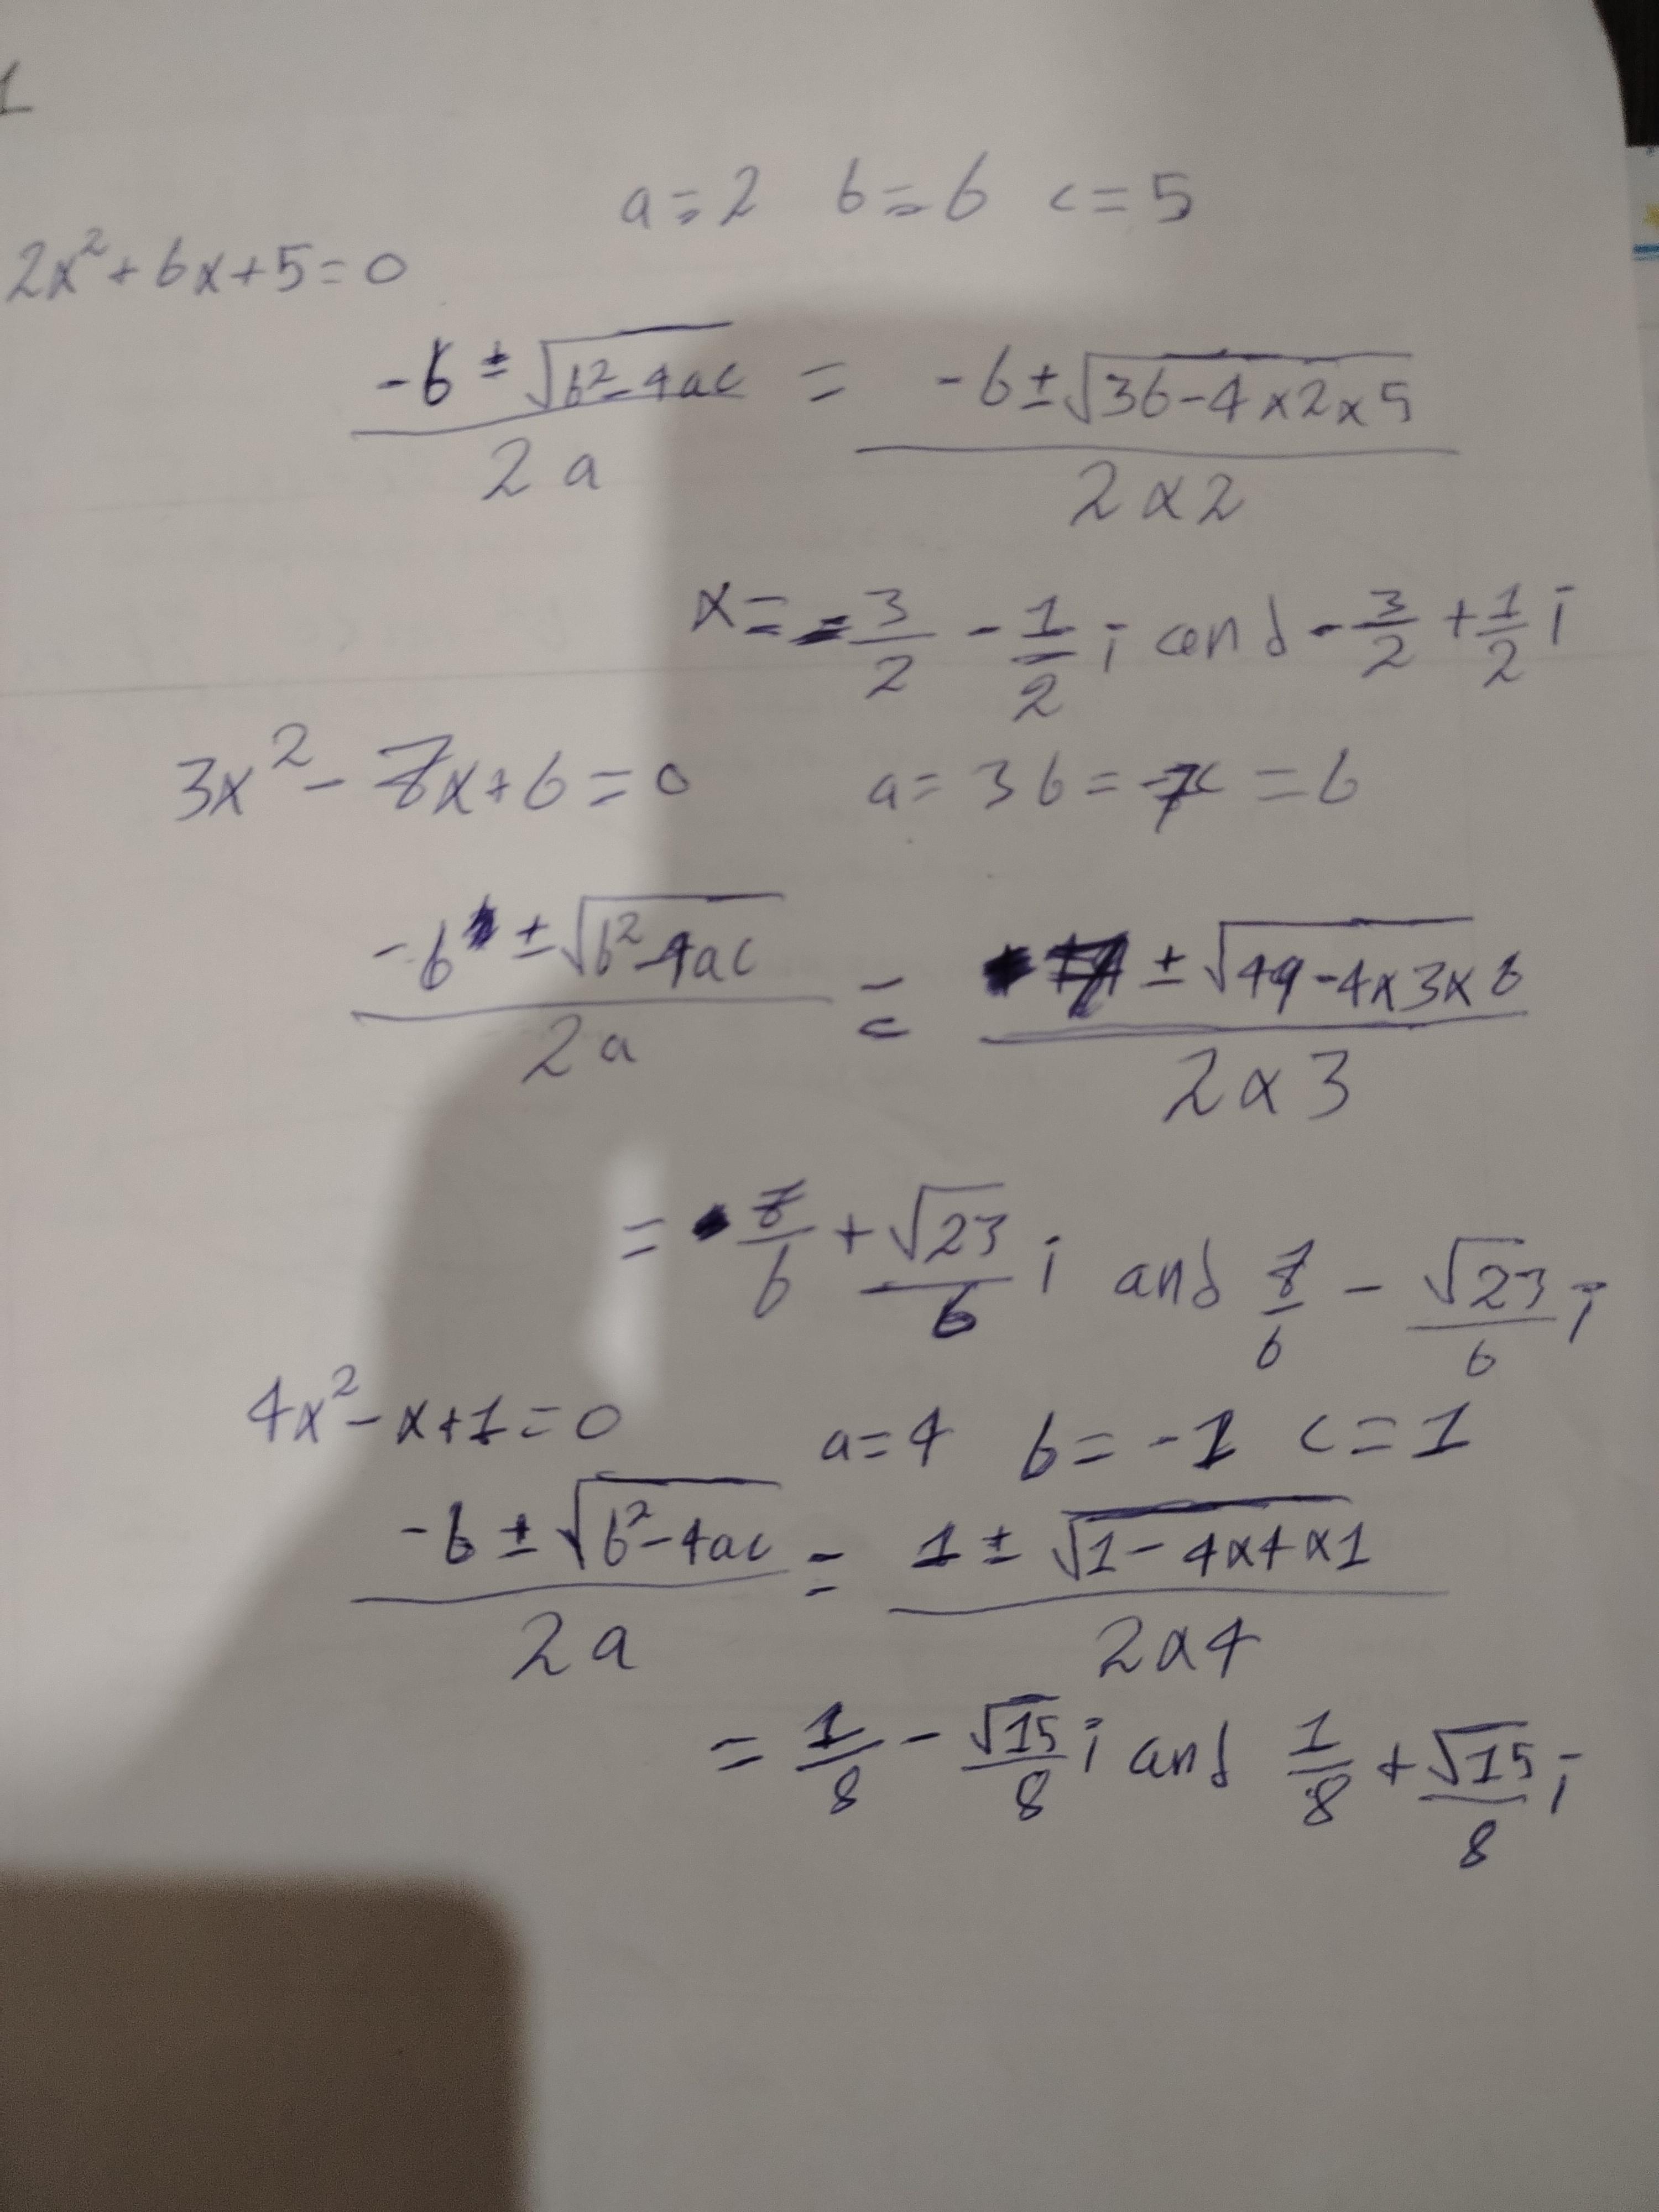 1
a=2 b=6 c=5
2x²+6x+5=0
-b±√(b²-4ac) / 2a = -6±√(36-4x2x5) / 2x2
x= -3/2 - 1/2 i and -3/2 + 1/2 i
3x² - 7x+6=0 a=3 b=-7 c=6
-b ± √(b²-4ac) / 2a = 7 ± √(49-4x3x6) / 2x3
= 7/6 + √23/6 i and 7/6 - √23/6 i
4x²-x+1=0 a=4 b=-1 c=1
-b ± √(b²-4ac) / 2a = 1 ± √(1-4x4x1) / 2x4
= 1/8 - √15/8 i and 1/8 + √15/8 i